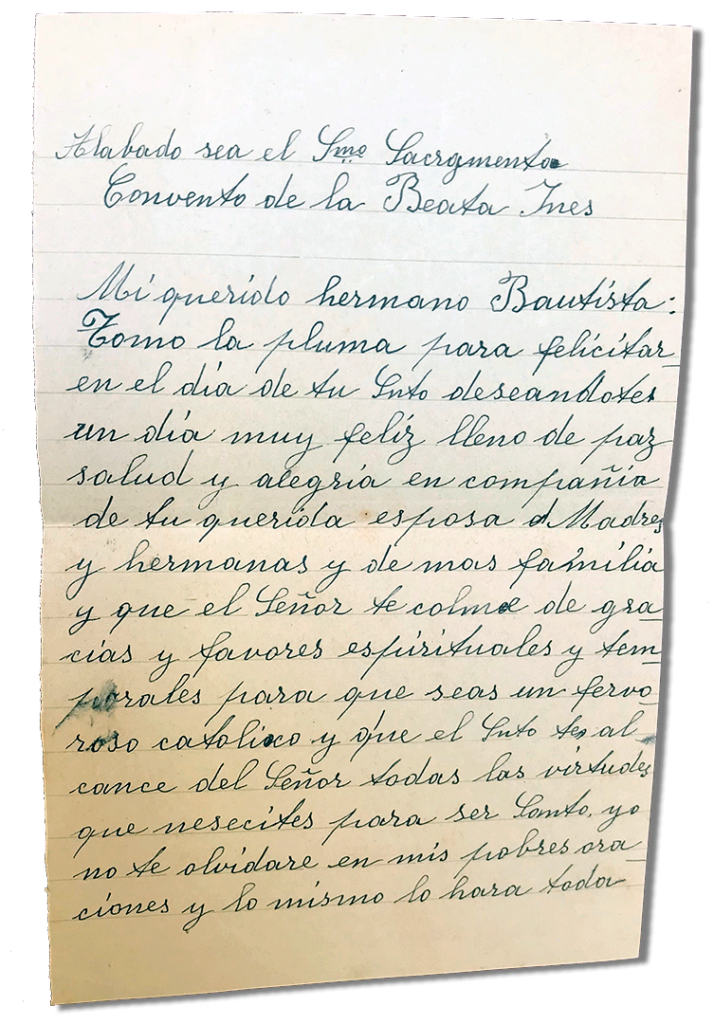 Alabado sea el Smo Sacramento
Convento de la Beata Ines
Mi querido hermano Bautista:
Tomo la pluma para felicitar-
en el dia de tu Snto deseandotes
un dia muy feliz lleno de paz
salud y alegria en compañia
de tu querida esposa d Madres
y hermanas y de mas familia
y que el Señor te colme de gra-
cias y favores espirituales y tem-
porales para que seas un fervo-
roso catolico y que el Snto tes al
cance del Señor todas las virtudes
que nesecites para ser Santo. yo
no te olvidare en mis pobres ora-
ciones y lo mismo lo hara toda